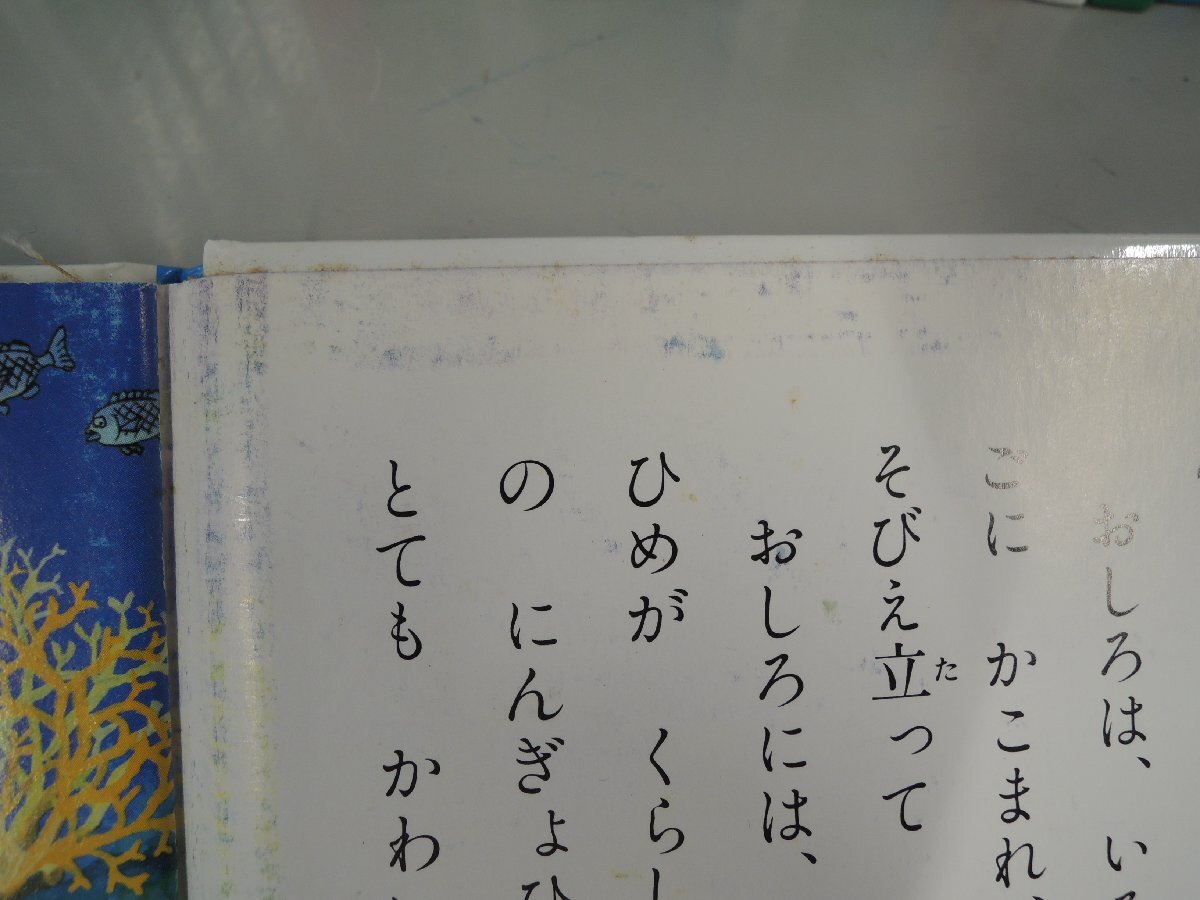 おしろは、 い
ごに かこまれ、
そびえ立って
た
おしろには、
ひめが くらし
の にんぎょひ
とても かわ